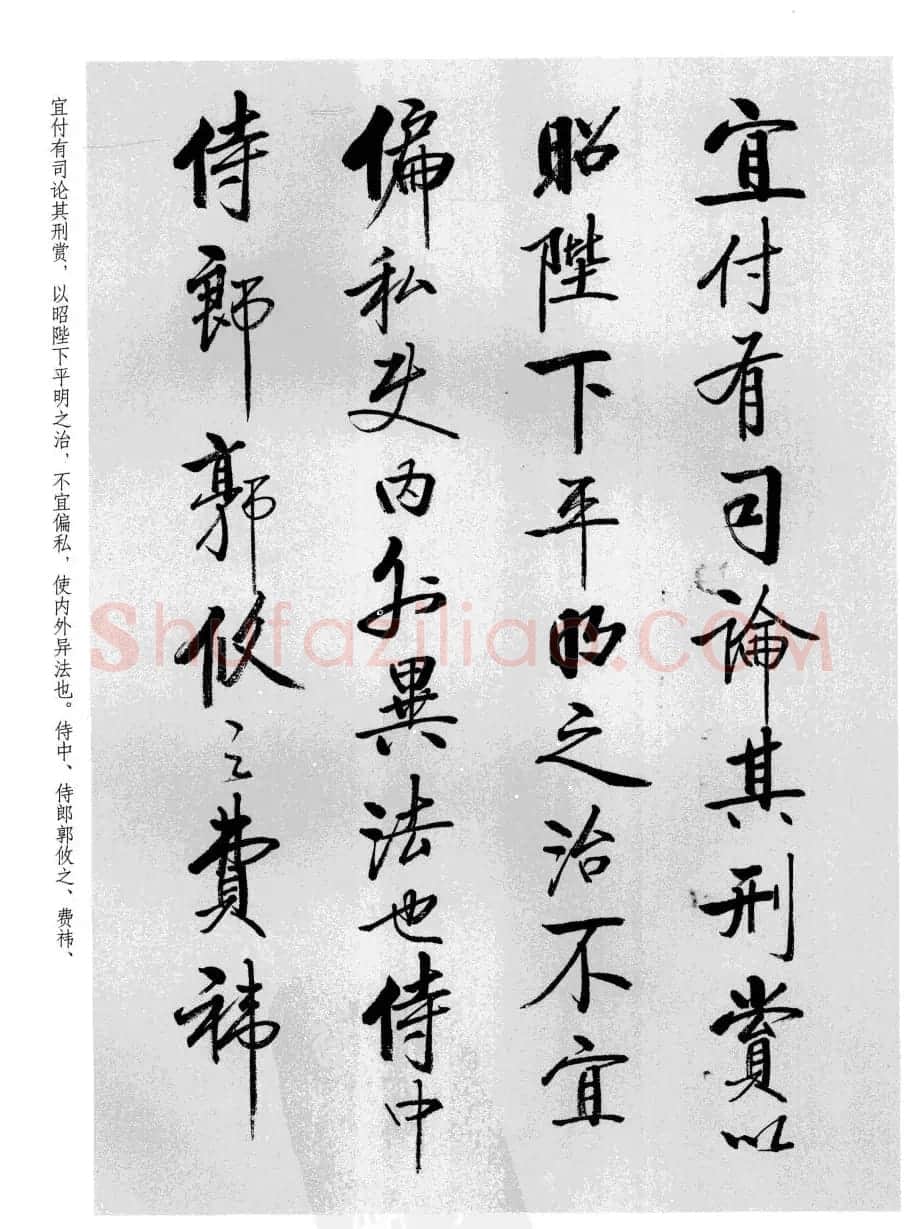 宜付有司論其刑賞以
昭陛下平明之治不宜
偏私使內外異法也侍中
侍郎郭攸之費禕
宜付有司论其刑赏，以昭陛下平明之治，不宜偏私，使内外异法也。侍中、侍郎郭攸之、费祎、
Shufaziliao.COM